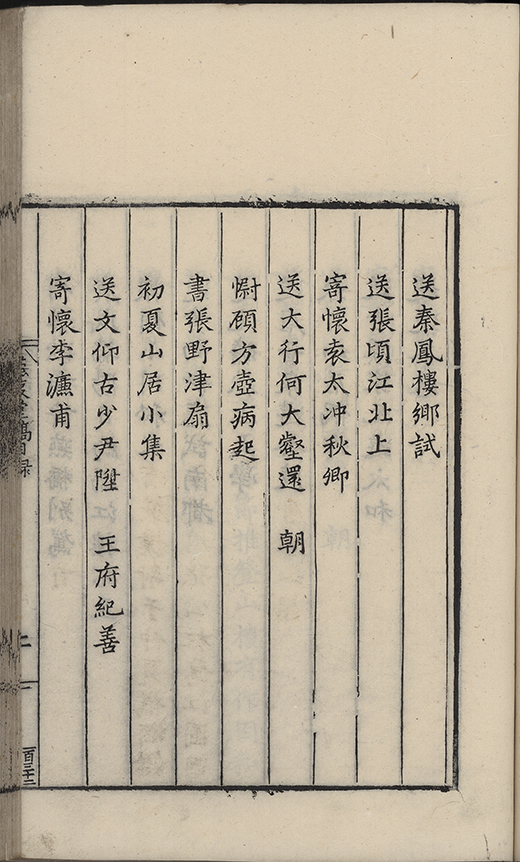 送秦鳳樓鄉試
送張頃江北上
寄懷袁太冲秋卿
送大行何大壑還　朝
慰顧方壺病起
書張野津扇
初夏山居小集
送文仰古少尹陞江　王府紀善
寄懷李瀌甫
稿目録
上
一百三十三